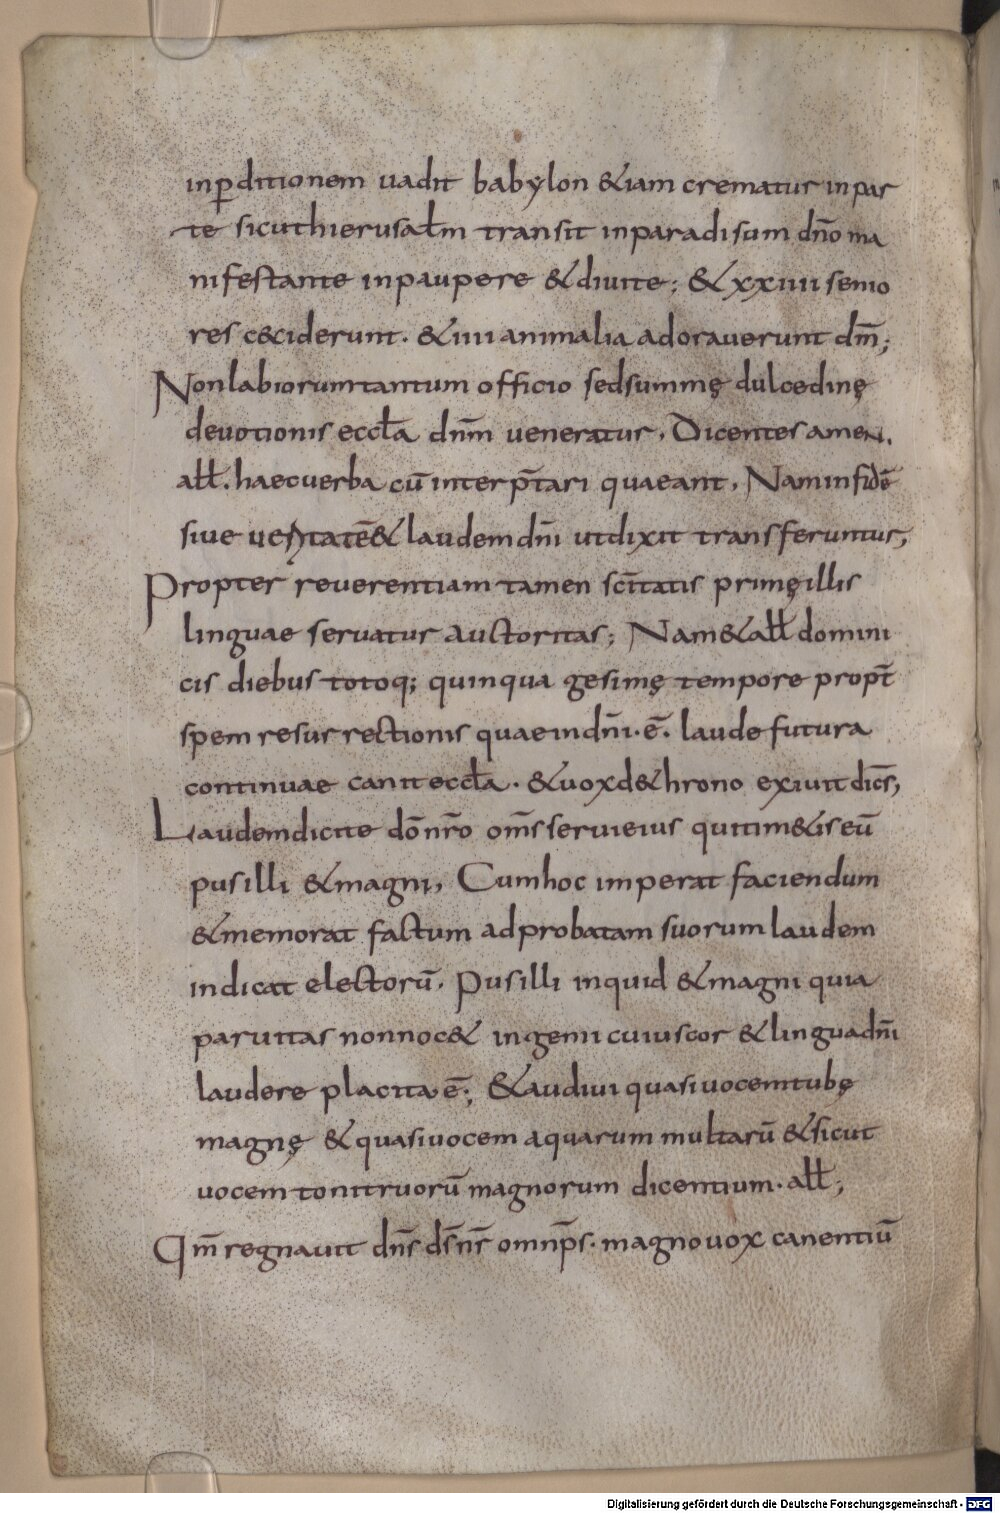 inꝑditionem uadit babylon &iam crematur inpar
te sicuthierusalm̄ transit inparadisum dn̄o ma
nifestante inpaupere &diuite; &xxiiii senio
res c&ciderunt. &iiii animalia adorauerunt dm̄;
Nonlabiorumtantum officio sedsummę dulcedinę
deuotionis eccla̅ dnm̄ ueneratur, Dicentes amen.
all̅. haecuerba cū interp̄tari quaeant, Naminfidē
siue ueritatē& laudemdn̄i utdixit transferuntur,
Propter reuerentiam tamen sc̄itatis primęillis
linguae seruatur auctoritas; Nam&all̅ domini
cis diebus totoq; quinqua gesimę tempore propt̄
spem resurrectionis quaeindn̄i.ē. laudefutura
continuae canit eccla̅. &uoxd&hrono exiuit dic̄s,
Laudemdicite dōnr̄o om̄sseruieius quitim&iseū
pusilli &magni, Cumhoc imperat faciendum
&memorat factum adprobatam suorumlaudem
indicat electorū. Pusilli inquid &magni quia
paruitas nonnoc& ingenii cuiuscor &linguadn̄i
laudere placita ē; &audiui quasiuocemtubę
magnę &quasiuocem aquarum multarū &sicut
uocem tonitruorū magnorum dicentium. all̅;
Qm̄ regnauit dn̄s ds̄ nr̄ omnp̄s. magnouox canentiū
Digitalisierung gefördert durch die Deutsche Forschungsgemeinschaft - DFG